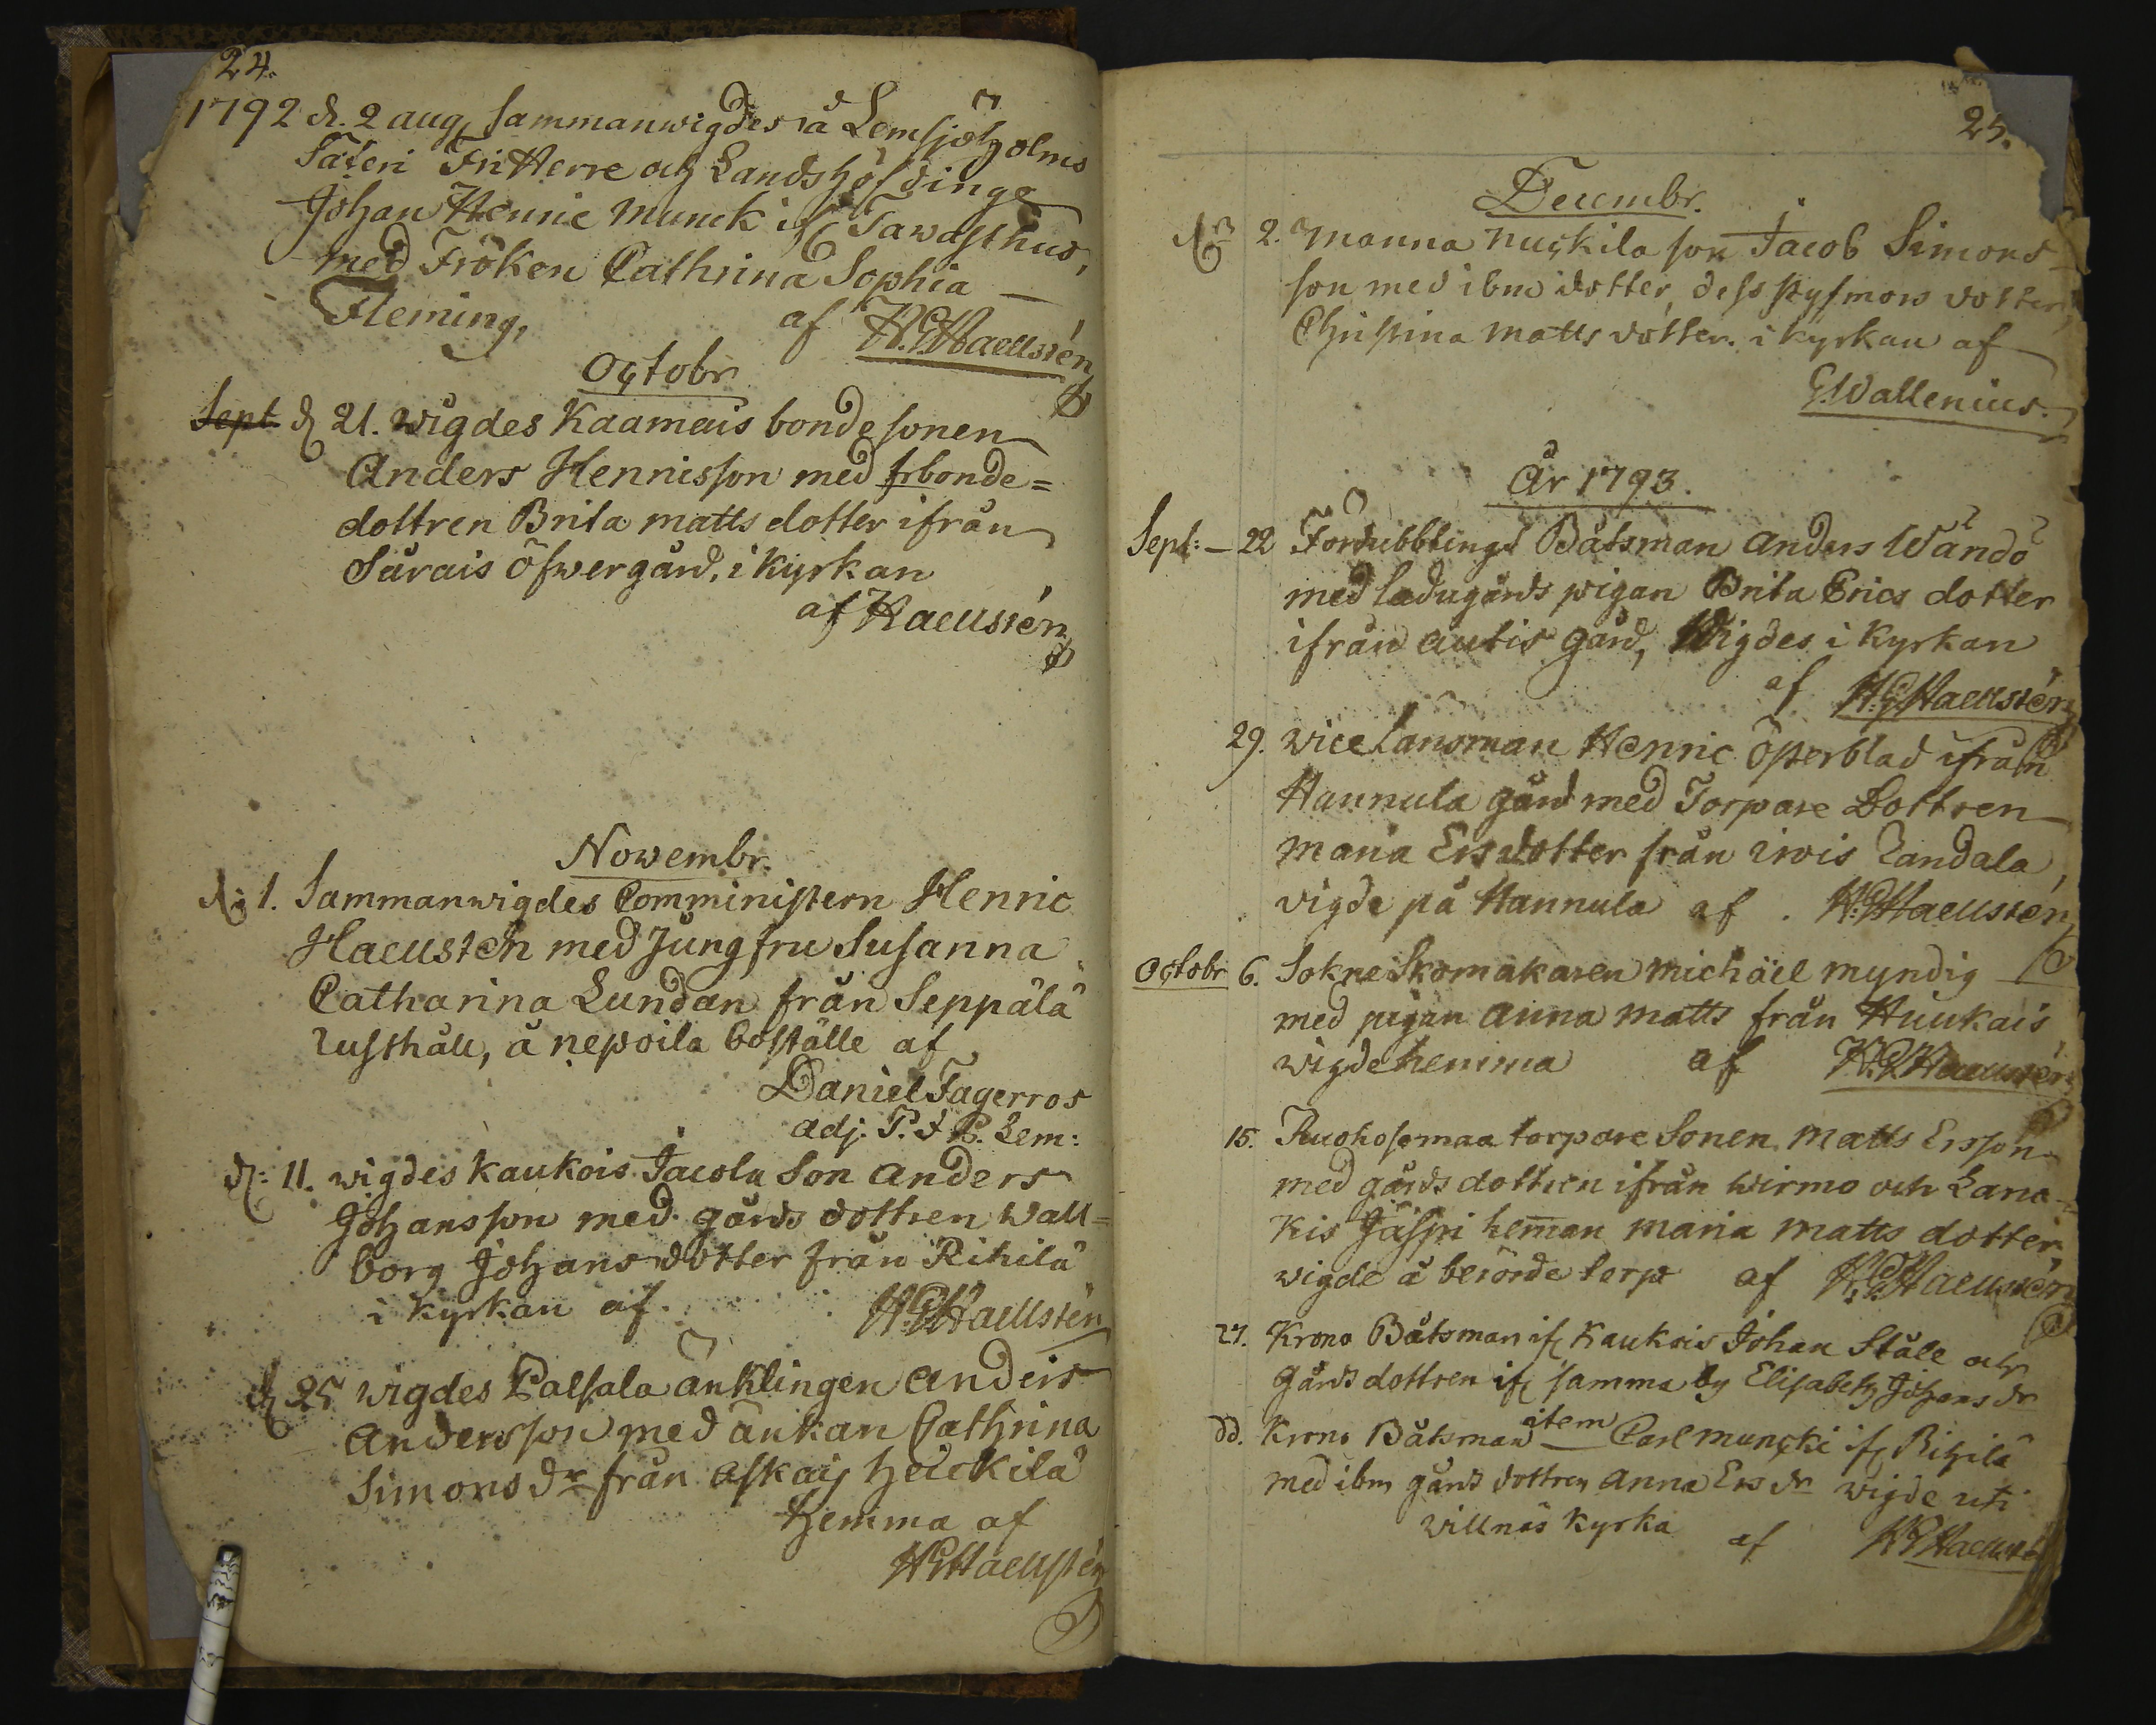 24.
1792 d. 2 aug. sammanwigdes å Lemsjöholms
Säteri FriHerre och Landshöfdinge
Johan Henric Munck if. Tawasthus,
med Fröken Cathrina Sophia
Fleming, af H.G.Haellstén
Octobr
Sept. d 21. wigdes Kaamais bonde sonen
Anders Hennisson med frbonde=
dottren Brita matts dotter ifrån
Särais öfwergård, i kyrkan
af Haellstén
Novembr.
d. 1. Sammanwigdes Comministern Henric
Haellstén med Jungfru Susanna
Catharina Lundan från Seppälä
Rusthåll, å nepoila boställe af
Daniel Fagerros
adj. P. & P. Lem:
d: 11. wigdes Kaukois Jacola Son Anders
Johansson med gårds dottren Wall=
borg Johansdotter från Rihilä
i kyrkan af H.G.Haellstén
d 25 wigdes Palsala änklingen Anders
Andersson med änkan Cathrina
Simons dr från Askais Heickilä
hemma af
H.G.Haellstén
25.
Decembr.
dn 2. Manna nuckila son Jacob Simons
son med ibm dotter, dess styfmors dotter,
Christina Matts dotter. i kyrkan af
G.Wallenius.
År 1793.
Sept: 22 Fördubblings Båtsman Anders Wändö
med ladugårds pigan Brita Erics dotter
ifrån Autis gård, Wigdes i kyrkan
af H.G.Haellstén
29. vice Länsman Henric Österblad ifrån
Hannula gård med Torpare Dottren
Maria Ersdotter från Irois Landala,
vigde på Hannula af H.G.Haellstén
Octobr 6. Sokne Skomakaren Michäel Myndig
med pigan Anna Matts från Huukais
wigde hemma af H.G.Haellstén
15. Ruohosomaa torpare Sonen Matts Ersson
med gårds dottren ifrån Wirmo och Lana-
kis Jäspri heman Maria Matts dotter
wigde å berörde torp af H.G.Haellstén
27. Krono Båtsman if. Kaukois Johan Ståle och
Gårds dottren if. samma by Elisabeth Johans dr
dd. Krono Båtsman item Carl Muncki if. Rihilä
med ibm gårds dottren Anna Ers dr wigde uti
Willnäs kyrka af H.G.Haellstén